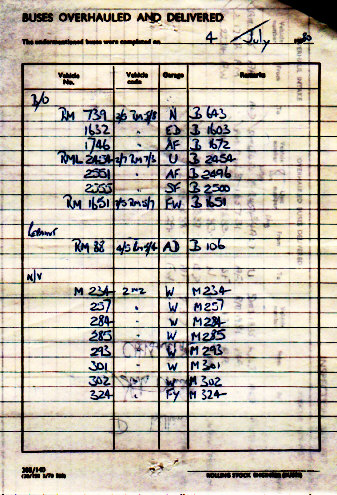 BUSES OVERHAULED AND DELIVERED
The undermentioned buses were completed on 4 / July / 1980
Vehicle No. Vehicle code Garage Remarks
B/O
RM 739 2/6 Rm 5/8 N B 643
1632 " ED B 1603
1746 " AF B 1672
RML 2454 2/7 RM 7/3 U B 2454
2551 " AF B 2496
2555 " SF B 2500
RM 1651 7/5 Rm 5/7 FW B 1651
RM 88 4/5 Rm 5/4 AD B 106
N/V
M 234 2M2 W M 234
257 " W M 257
284 " W M 284
285 " W M 285
293 " W M 293
301 " W M 301
302 " W M 302
324 " FY M 324
ROLLING STOCK ENGINEER (BUSES)